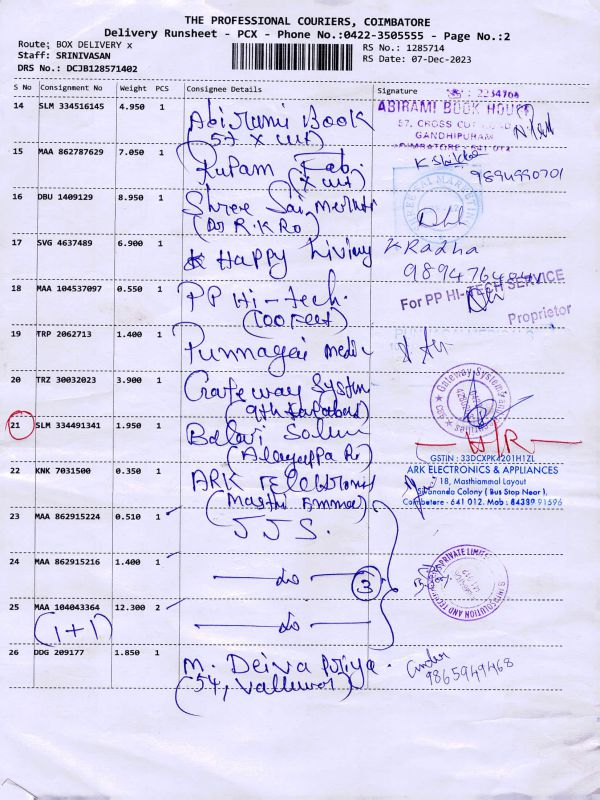 THE PROFESSIONAL COURIERS, COIMBATORE
Delivery Runsheet - PCX - Phone No.:0422-3505555 - Page No.:2
Route: BOX DELIVERY x
RS No.: 1285714
Staff: SRINIVASAN
RS Date: 07-Dec-2023
DRS No.: DCJB128571402
S No Consignment No Weight PCS Consignee Details Signature
14 SLM 334516145 4.950 1 Abirami Book
(57 x cut)
ABIRAMI BOOK HOUSE
57, CROSS CUT ROAD
GANDHIPURAM
15 MAA 862787629 7.050 1 Rupam Fab.
(x cut)
9894990701
16 DBU 1409129 8.950 1 Shree Sai
(Dr R.K Ro)
17 SVG 4637489 6.900 1 Happy Living K Radha
18 MAA 104537097 0.550 1 PP Hi-tech.
(100 Feet)
For PP HI-TECH SERVICE
Proprietor
19 TRP 2062713 1.400 1 Punnagai medic
20 TRZ 30032023 3.900 1 Gateway System
Gateway Systems
21 SLM 334491341 1.950 1 Balavi
(Alagappa Ro)
22 KNK 7031500 0.350 1 ARK
GSTIN : 33DCXPK4201H1ZL
ARK ELECTRONICS & APPLIANCES
18, Masthiammal Layout
Sivananda Colony ( Bus Stop Near ),
Coimbatore - 641 012. Mob : 84389 91596
23 MAA 862915224 0.510 1 JJS.
24 MAA 862915216 1.400 1 do
3
25 MAA 104043364 12.300 2 do
(1+1)
26 DDG 209177 1.850 1 M. Deiva Priya.
(54, Valluvar)
9865949468